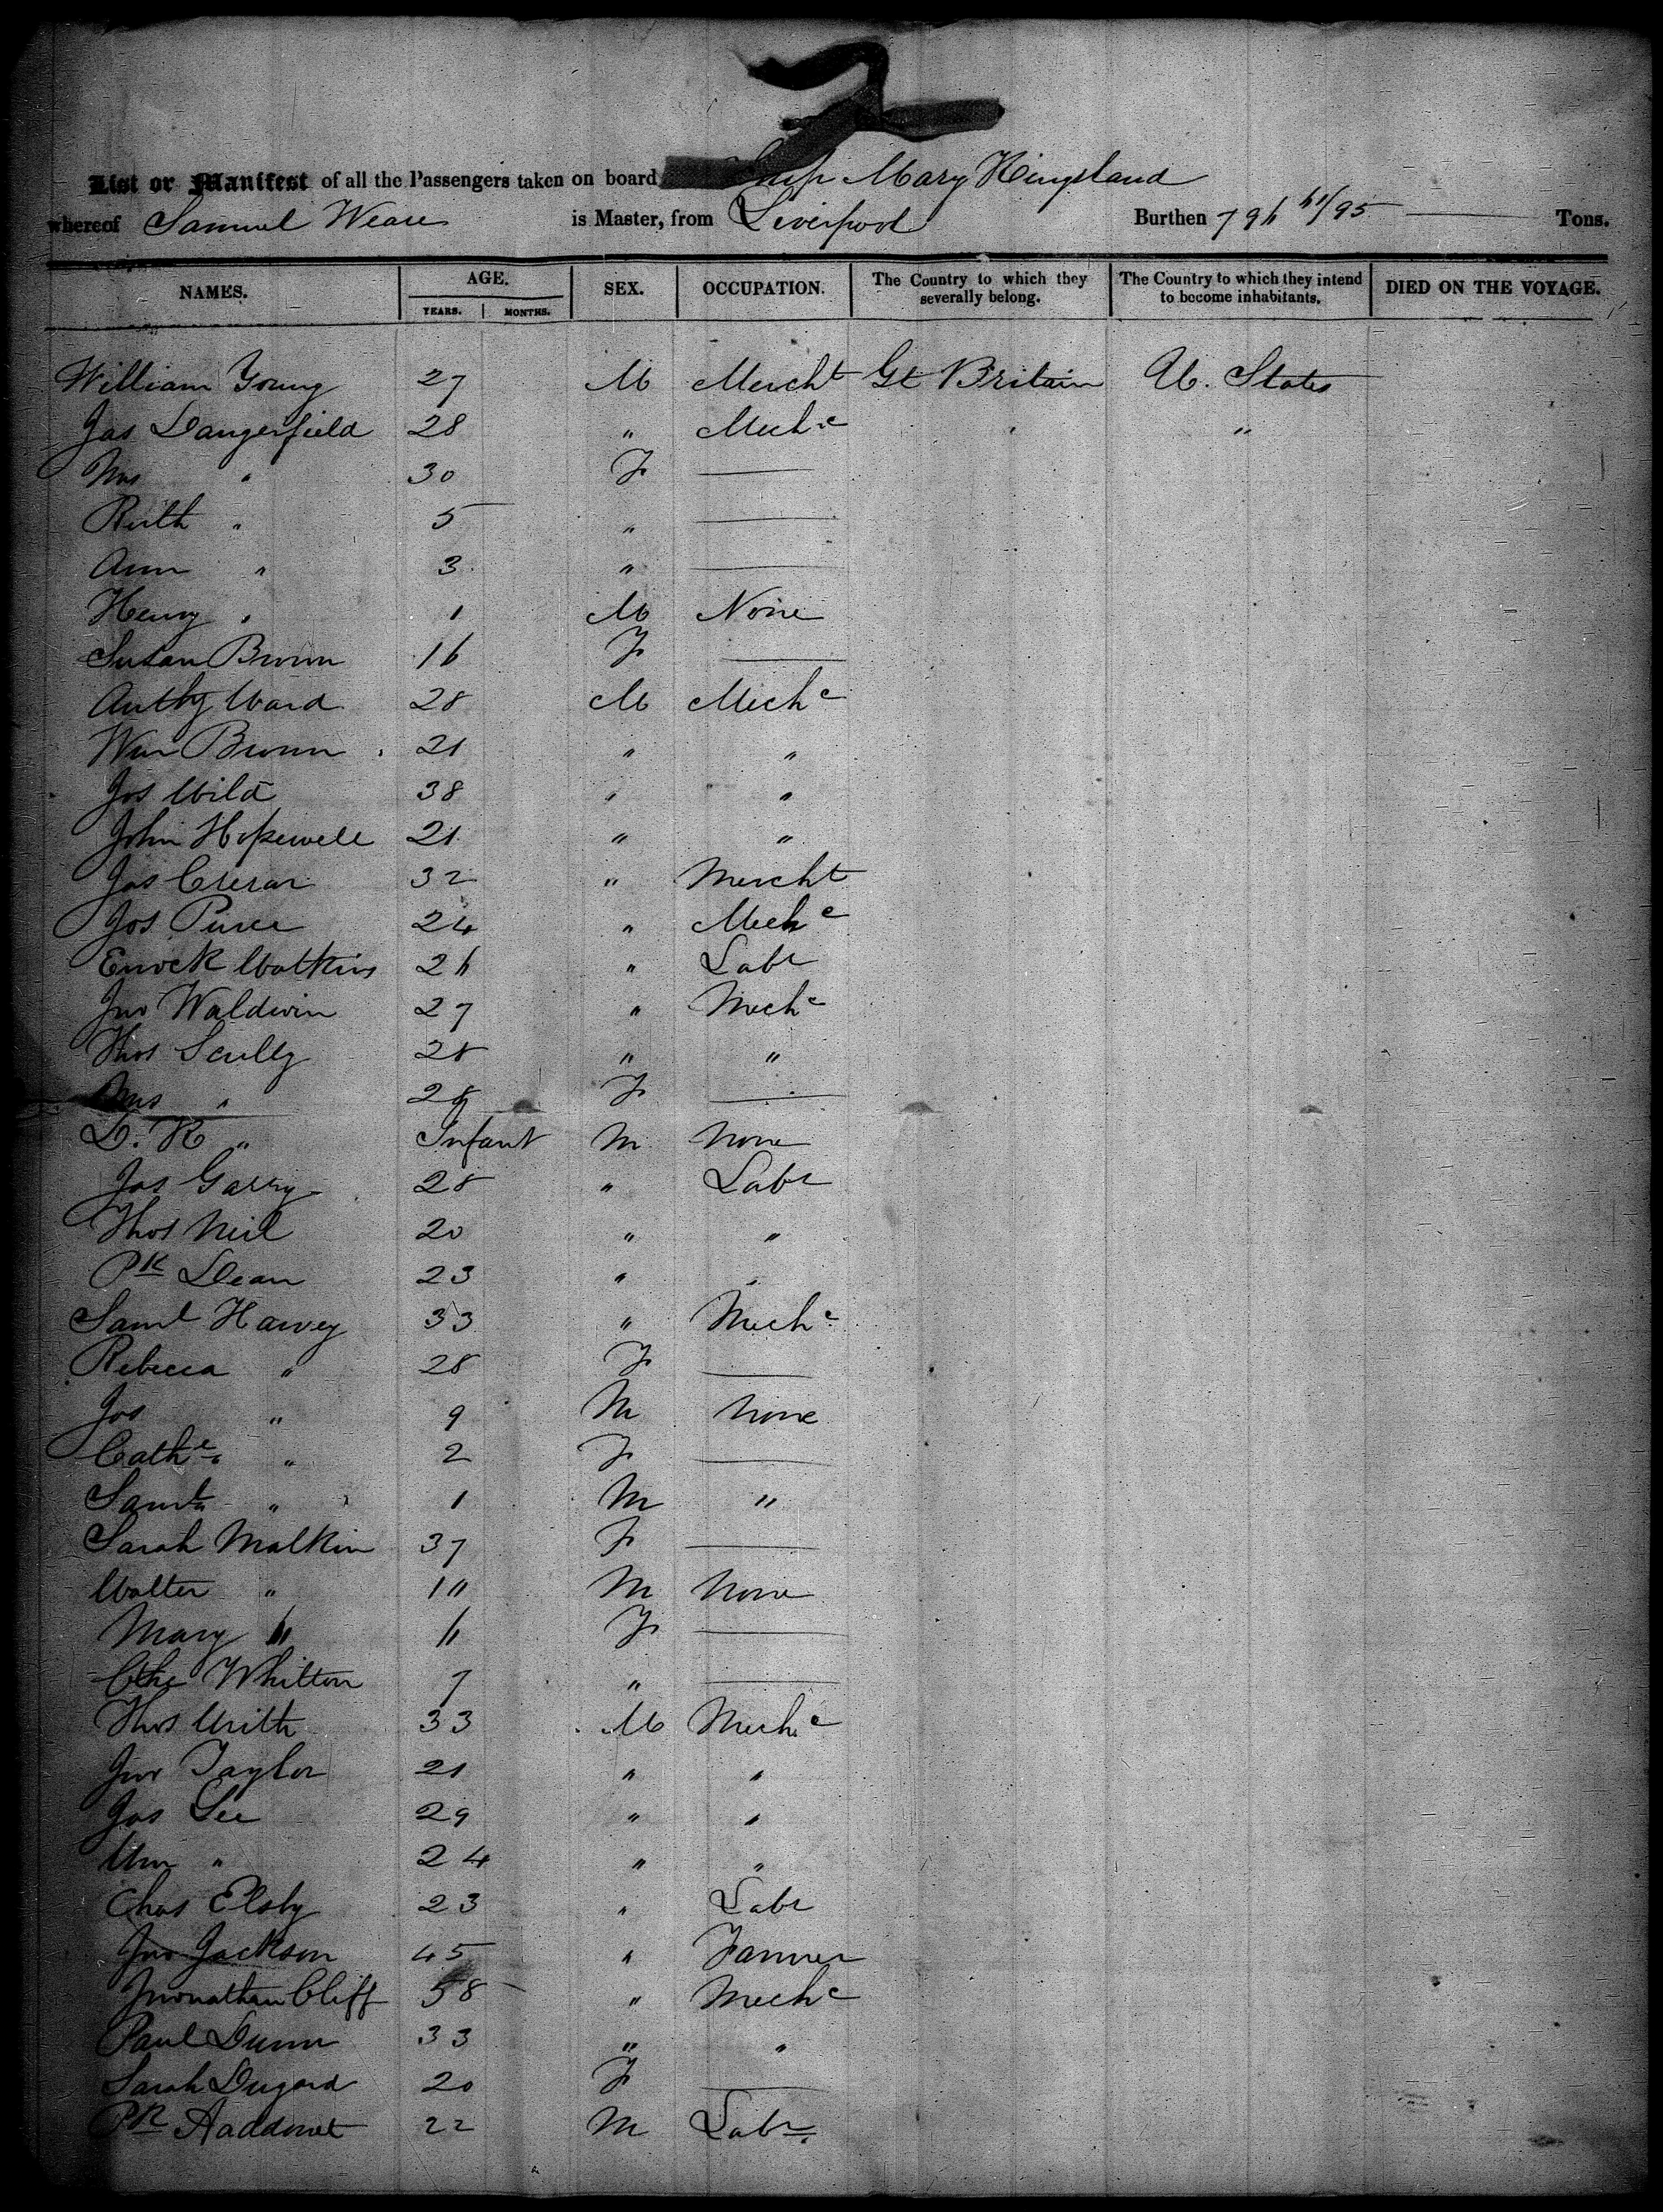 List or Manifest of all the Passengers taken on board Ship Mary Kingsland
whereof Samuel Weare is Master, from Liverpool Burthen 796 61/95 Tons.
NAMES. AGE. SEX. OCCUPATION. The Country to which they severally belong. The Country to which they intend to become inhabitants. DIED ON THE VOYAGE.
YEARS. MONTHS.
William Young 27 M Mercht Gt Britain U. States
Jas Dangerfield 28 " Mechc "
Mrs " 30 F —
Ruth " 5 " —
Ann " 3 " —
Henry " 1 M None
Susan Brown 16 F —
Anthy Ward 28 M Mechc
Wm Brown 21 " "
Jos Wild 38 " "
John Hopewell 21 " "
Jas Crerar 32 " Mercht
Jos Purce 24 " Mechc
Enock Watkins 26 " Labr
Jno Waldwin 27 " Mechc
Thos Scully 28 " "
Mrs " 28 F —
D. K " Infant M None
Jas Garry 28 " Labr
Thos Neil 20 " "
Pk Dean 23 " "
Saml Harvey 33 " Mechc
Rebecca " 28 F —
Jos " 9 M None
Cathe " 2 F —
Saml " 1 M "
Sarah Malkin 37 F —
Walter " 10 M None
Mary " 6 F —
Cthe Whilton 7 " —
Thos Urith 33 M Mechc
Jno Taylor 21 " "
Jas Lee 29 " "
Wm " 24 " "
Chas Elsby 23 " Labr
Jno Jackson 45 " Farmer
Jnonathan Cliff 58 " Mechc
Paul Dunn 33 " "
Sarah Dugard 20 F —
Pk 22 M Labr